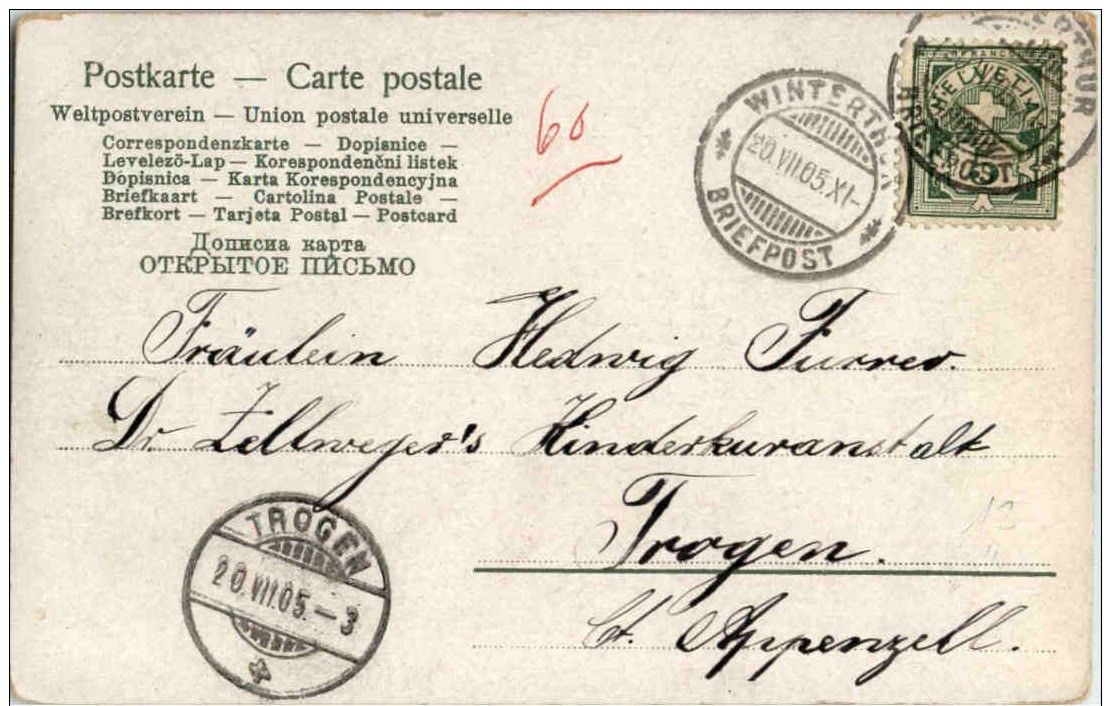 Postkarte — Carte postale
Weltpostverein — Union postale universelle
Correspondenzkarte — Dopisnice —
Levelező-Lap — Korespondenční listek
Dopisnica — Karta Korespondencyjna
Briefkaart — Cartolina Postale —
Brefkort — Tarjeta Postal — Postcard
Дописна карта
ОТКРЫТОЕ ПИСЬМО
60
WINTERTHUR
20.VII.05.XI-
BRIEFPOST
WINTERTHUR
BRIEFPOST
FRANCO
HELVETIA
5
Fräulein Hedwig Furrer.
Dr. Zellweger's Kinderkuranstalt
Trogen.
Ct. Appenzell.
TROGEN
20.VII.05.-3